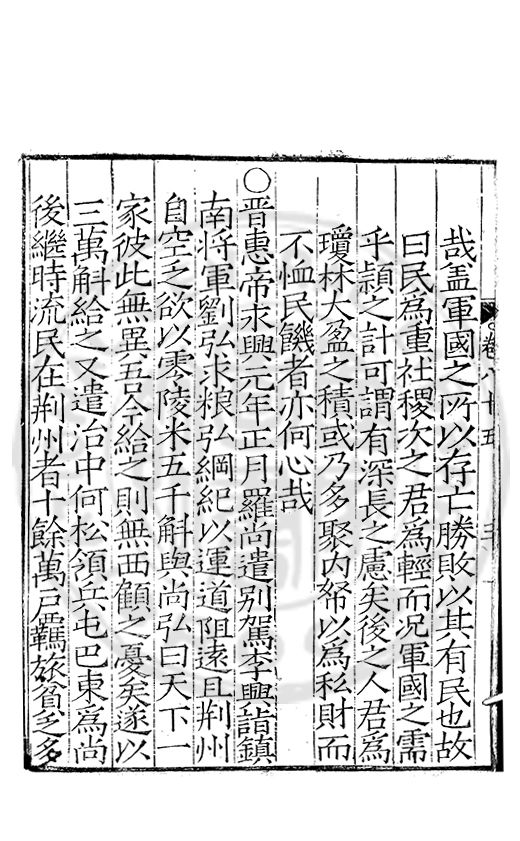 卷八十五
哉盖軍國之所以存亡勝敗以其有民也故
曰民為重社稷次之君為輕而况軍國之需
乎頴之計可謂有深長之慮矣後之人君為
瓊林大盈之積或乃多聚内帑以為私財而
不恤民饑者亦何心哉
○晋惠帝永興元年正月羅尚遣别駕李興詣鎮
南将軍劉弘求粮弘綱紀以運道阻逺且荆州
自空乏欲以零陵米五千斛與尚弘曰天下一
家彼此無異吾今給之則無西顧之憂矣遂以
三萬斛給之又遣治中何松領兵屯巴東為尚
後繼時流民在荆州者十餘萬戸羈旅貧乏多